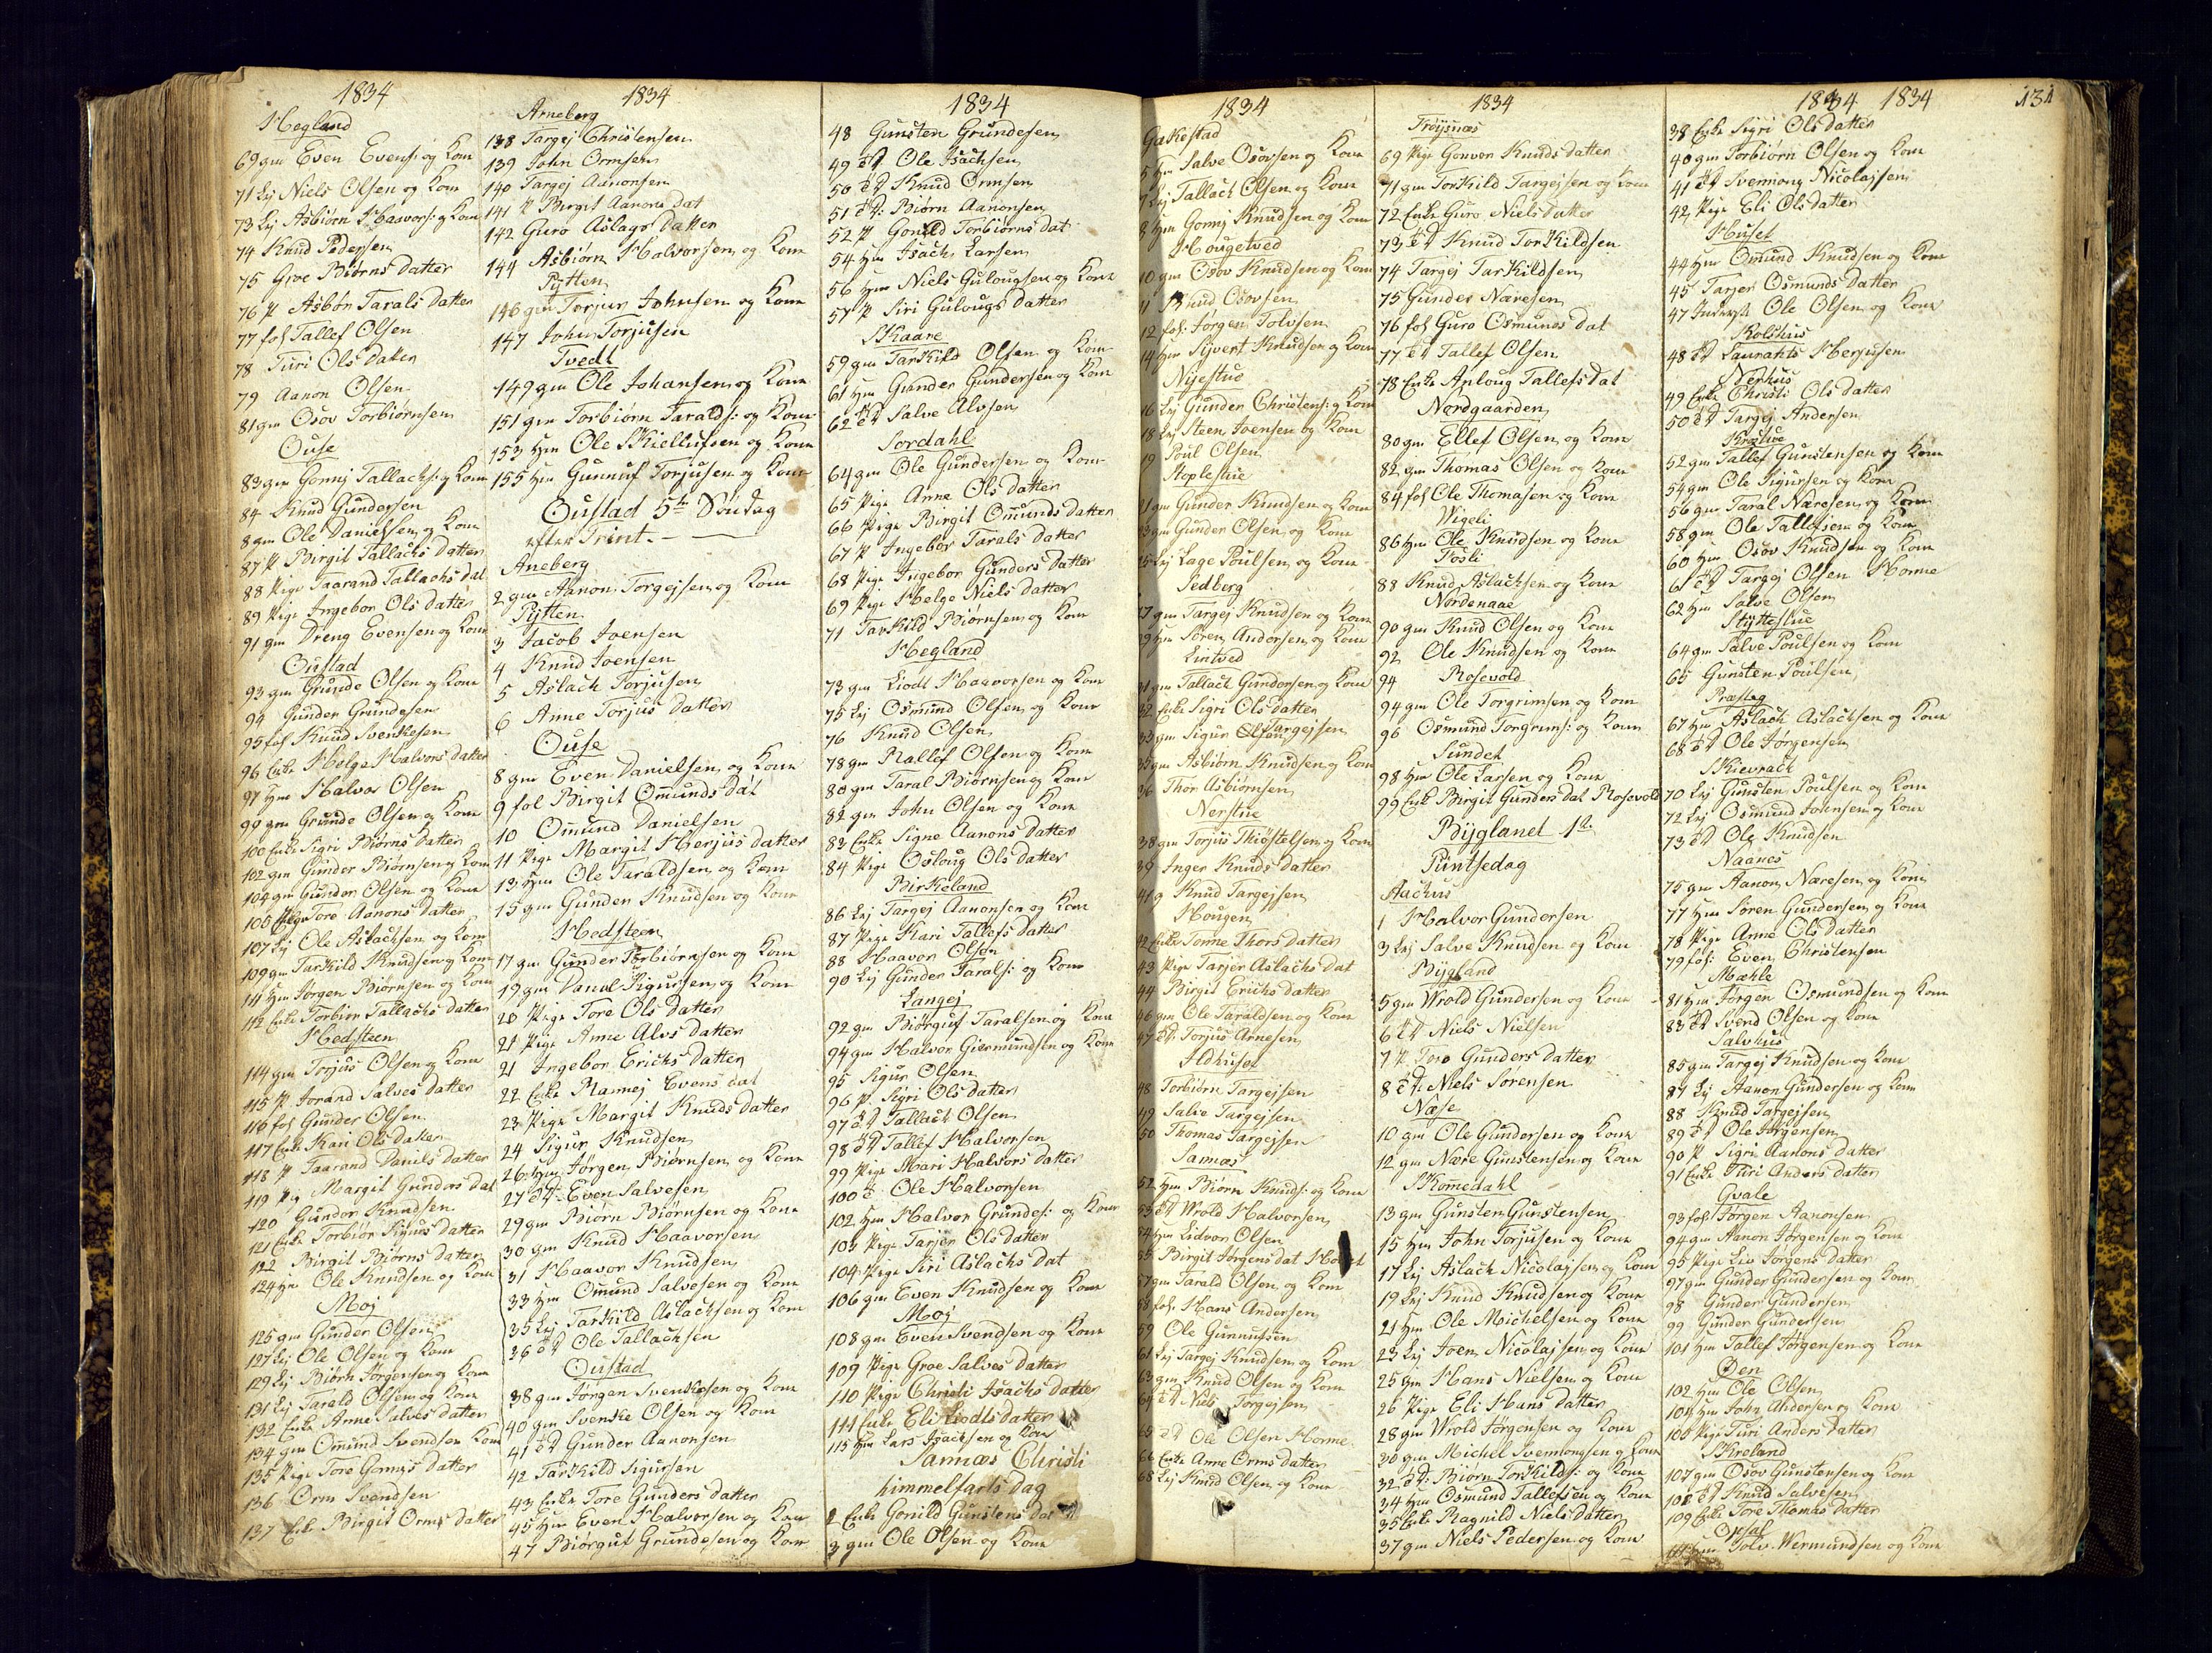 1834
Hegland
69 gm Even Evens: og Kone
71 Lej Niels Olsen og Kone
73 Lej Asbiörn Haavors: og Kone
74 Knud Pedersen
75 Groe Biörns datter
76 P Asbör Tarals datter
77 fol Tallef Olsen
78 Turi Ols datter
79 Aanon Olsen
81 gm Osov Torbiörnsen
Ouse
83 gm Gomej Tallachs: og Kone
84 Knud Gundersen
8 gm Ole Danielsen og Kone
87 P Birgit Tallachs datter
88 Pige Taarand Tallachs dat
89 Pige Ingebor Ols datter
91 gm Dreng Evensen og Kone
Oustad
93 gm Grunde Olsen og Kone
94 Gunder Grundesen
95 fol Knud Svenkesen
96 Enke Helge Halvors datter
97 Hm Halvor Olsen
99 gm Grunde Olsen og Kone
100 Enke Sigri Biörns datter
102 gm Gunder Biörnsen og Kone
104 gm Gunder Olsen og Kone
105 Pige Tore Aanons datter
107 Lej Ole Aslachsen og Kone
109 gm Tarkild Knudsen og Kone
111 Hm Jörgen Biörnsen og Kone
112 Enke Torbiör Tallachs datter
Hedsteen
114 gm Torjus Olsen og Kone
115 P Jorand Salves datter
116 fol Gunder Olsen
117 Enke Kari Ols datter
118 P Taarand Daniels datter
119 Pig Margit Gunders dat
120 Gunder Knudsen
121 Enke Torbiör datter
122 Birgit Biörns datter
124 Hm Ole Knudsen og Kone
Moj
125 gm Gunder Olsen
127 Lej Ole Olsen og Kone
129 Lej Biörn Jörgensen og Kone
131 Lej Tarald Olsen og Kone
132 Enke Anne Salves datter
134 gm Omund Svendsen Kone
135 Pige Tore Gomejs datter
136 Orm Svendsen
137 Enke Birgit Orms datter
1834
Arneberg
138 Targej Christensen
139 John Ormsen
140 Targej Aanonsen
141 P Birgit Aanons dat
142 Guro Aslags datter
144 Asbiörn Halvorsen og Kone
Pytten
146 gm Torjus Johnsen og Kone
147 John Torjusen
Tvedt
149 gm Ole Johansen og Kone
151 gm Torbiörn Taralds: og Kone
153 Hm Ole Skiellufsen og Kone
155 Hm Gunnuf Torjusen og Kone
Oustad 5te Söndag
efter Trint.
Aneberg
2 gm Aanon Torgejsen og Kone
Pytten
3 Jacob Joensen
4 Knud Joensen
5 Aslach Torjusen
6 Anne Torjus datter
Ouse
8 gm Even Danielsen og Kone
9 fol Birgit Omunds dat
10 Omund Danielsen
11 Pige Margit Herjus datter
13 Hm Ole Taraldsen og Kone
15 gm Gunder Knudsen og Kone
Hedsteen
17 gm Gunder Torbiörnsen og Kone
19 gm Danel Sigursen og Kone
20 Pige Tore Ols datter
21 Pige Anne Alvs datter
21 Ingebor Erichs datter
22 Enke Ramej Evens dat
23 Pige Margit Knuds datter
24 Sigur Knudsen
26 Hm Jörgen Biörnsen og Kone
27 Even Salvesen
29 gm Biörn Biörnsen og Kone
30 gm Knud Haavorsen
31 Haavor Knudsen
33 Hm Omund Salvesen og Kone
35 Lej Tarkild Aslachsen og Kone
36 Ole Tallachsen
Oustad
38 gm Jörgen Svenkesen og Kone
40 gm Svenke Olsen og Kone
41 Gunder Aanonsen
42 Tarkild Sigursen
43 Enke Tore Gunders datter
45 Hm Even Halvorsen og Kone
47 Biörguf Grundesen og Kone
1834
48 Gunsten Grundesen
49 Ole Isachsen
50 Knud Ormsen
51 Biörn Aanonsen
52 P Gonild Torbiörns dat
54 Hm Isach Larsen
56 Hm Niels Gulougsen og Kone
57 P Siri Gulougs datter
Skaare
59 gm Tarkild Olsen og Kone
61 Hm Gunder Gundersen og Kone
62 Salve Alvsen
Sordahl
64 gm Ole Gundersen og Kone
65 Pige Anne Ols datter
66 Pige Birgit Omunds datter
67 P Ingebor Tarals datter
68 Pige Ingebor Gunders datter
69 Pige Helge Niels datter
71 Tarkild Biörnsen og Kone
Hegland
73 gm Liodt Haavorsen og Kone
75 Lej Osmund Olsen og Kone
76 Knud Olsen
78 gm Rallef Olsen og Kone
80 gm Taral Biörnsen og Kone
82 gm John Olsen og Kone
83 Enke Signe Aanons datter
84 Pige Osloug Ols datter
Birkeland
86 Lej Targej Aanonsen og Kone
87 Pige Kari Tallefs datter
88 Haavor Olsen
90 Lej Gunder Tarals: og Kone
Langej
92 gm Biörguf Taralsen og Kone
94 gm Halvor Giermundsen og Kone
95 Sigur Olsen
96 P. Sigri Ols datter
97 Tallach Olsen
98 Tallef Halvorsen
99 Pige Mari Halvors datter
100 Ole Halvorsen
102 Hm Halvor Grundes: og Kone
103 Pige Tarjer Ols datter
104 Pige Siri Aslachs dat
106 gm Even Knudsen og Kone
Moj
108 gm Even Svendsen og Kone
109 Pige Groe Salves datter
110 Pige Christi Isachs datter
111 Enke Eli Liodts datter
115 Hm Lars Isachsen og Kone
Sannæs Christi
himmelfarts dag
2 Enke Gonild Gunstens dat
3 gm Ole Olsen og Kone
1834
Gakestad
5 Hm Salve Osovsen og Kone
7 Lej Tallach Olsen og Kone
8 Hm Gomej Knudsen og Kone
Hougetved
10 gm Osov Knudsen og Kone
11 Knud Osovsen
12 fol: Jörgen Tolvsen
14 Hm Sijvert Knudsen og Kone
Nijestue
16 Lej Gunder Christens: og Kone
18 Lej Steen Joensen og Kone
19 Poul Olsen
Stoplestue
21 gm Gunder Knudsen og Kone
23 gm Gunder Olsen og Kone
25 Lej Lage Poulsen og Kone
Sedberg
27 gm Targej Knudsen og Kone
29 Hm Sören Andersen og Kone
Lintved
31 gm Tallach Gundersen og Kone
32 Enke Sigri Ols datter
33 gm Sigur Targejsen
35 gm Asbiörn Knudsen og Kone
36 Thor Asbiörnsen
Nerstue
38 gm Torjus Thiöstelsen og Kone
39 Inger Knuds datter
41 g Knud Targejsen
Hougen
42 Enke Tonne Thors datter
43 Pige Tarjer Aslachs dat
44 Birgit Erichs datter
46 gm Ole Taraldsen og Kone
47 Torjus Arnesen
Ildhuset
48 Torbiörn Targejsen
49 Salve Targejsen
50 Thomas Targejsen
Sannæs
52 Hm Biörn Knuds: og Kone
53 Wrold Halvorsen
54 Hm Eidvor Olsen
55 Birgit Jörgens dat
57 gm Tarald Olsen og Kone
58 fol. Hans Andersen
59 Ole Gunnufsen
61 Lej Targej Knudsen og Kone
63 gm Knud Olsen og Kone
64 Niels Torgejsen
65 Ole Olsen Homme
66 Enke Anne Orms datter
68 Lej Knud Olsen og Kone
1834
Fröysnæs
69 Pige Gonvor Knuds datter
71 gm Torkild Targejsen og Kone
72 Enke Guro Niels datter
73 Knud Torkildsen
74 Targej Tarkildsen
75 Gunder Næresen
76 fol Guro Osmunds dat
77 Tallef Olsen
78 Enke Anloug Tallefs dat
Nordgaarden
80 gm Ellef Olsen og Kone
82 gm Thomas Olsen og Kone
84 fol Ole Thomasen og Kone
Wigeli
86 Hm Ole Knudsen og Kone
Fosli
88 Knud Aslachsen og Kone
Nordenaae
90 gm Knud Olsen og Kone
92 Ole Knudsen og Kone
94 Rosevold
94 gm Ole Torgrimsen og Kone
96 Osmund Torgrims: og Kone
Sundet
98 Hm Ole Larsen og Kone
99 Enke Birgit Gunders dat Rosevold
Bygland 1te
Pintsedag
Aachus
1 Halvor Gundersen
3 Lej Salve Knudsen og Kone
Bygland
5 gm Wrold Gundersen og Kone
6 Niels Nielsen
7 P. Tore Gunders datter
8 Niels Sörensen
Næse
10 gm Ole Gundersen og Kone
12 gm Nære Gunstensen og Kone
Skomedahl
13 gm Gunsten Gunstensen
15 Hm John Torjusen og Kone
17 Lej Aslach Nicolajsen og Kone
19 Lej Knud Knudsen og Kone
21 Hm Ole Michelsen og Kone
23 Lej Joen Nicolajsen og Kone
25 Hm Hans Nielsen og Kone
26 Pige Eli Hans datter
28 gm Wrold Jörgensen og Kone
30 gm Michel Svennongsen og Kone
32 Biörn Torkilds: og Kone
34 Hm Osmund Tallefsen og Kone
35 Enke Ragnild Niels datter
37 gm Niels Pedersen og Kone
1834 1834
131
38 Enke Sigri Ols datter
40 gm Torbiörn Olsen og Kone
41 Svennong Nicolajsen
42 Pige Eli Ols datter
Huset
44 Hm Omund Knudsen og Kone
45 Tarjer Osmunds datter
47 Inderst Ole Olsen og Kone
Kolshus
48 Laurants Herjusen
Nerhus
49 Enke Christi Ols datter
50 Targej Andersen
52 gm Tallef Gunstensen og Kone
54 gm Ole Sigursen og Kone
56 gm Taral Næresen og Kone
58 gm Ole Tallefsen og Kone
60 Hm Osov Knudsen og Kone
61 Targej Olsen Homme
62 Hm Salve Olsen
Styttestue
64 gm Salve Poulsen og Kone
65 Gunsten Poulsen
Præsteg
67 Hm Aslach Aslachsen og Kone
68 Ole Jörgensen
Skievrach
70 Lej Gunsten Poulsen og Kone
72 Lej Osmund Johnsen og Kone
73 Ole Knudsen
Naanes
75 gm Aanon Næresen og Kone
77 Hm Sören Gundersen og Kone
78 Pige Anne Ols datter
79 fol: Even Christensen
Mæhle
81 Hm Jörgen Osmundsen og Kone
83 Svend Olsen og Kone
Salvhus
85 gm Targej Knudsen og Kone
87 Lej Aanon Gundersen og Kone
88 Knud Targejsen
89 Ole Jörgensen
90 P Sigri Aanons datter
91 Enke Turi Anders datter
Qvale
93 fol Jörgen Aanonsen
94 gm Aanon Jörgensen og Kone
95 Pige Liv Jörgens datter
97 gm Gunder Gundersen og Kone
98 Gunder Gundersen
99 Gunder Gundersen
101 Hm Tallef Jörgensen og Kone
Öen
102 Hm Ole Olsen
104 Hm John Andersen og Kone
105 Pige Turi Anders datter
Skreland
107 gm Osov Gunstensen og Kone
108 Knud Salvesen
109 Enke Tore Thomas datter
Opsal
111 Hm Tolv Wermundsen og Kone